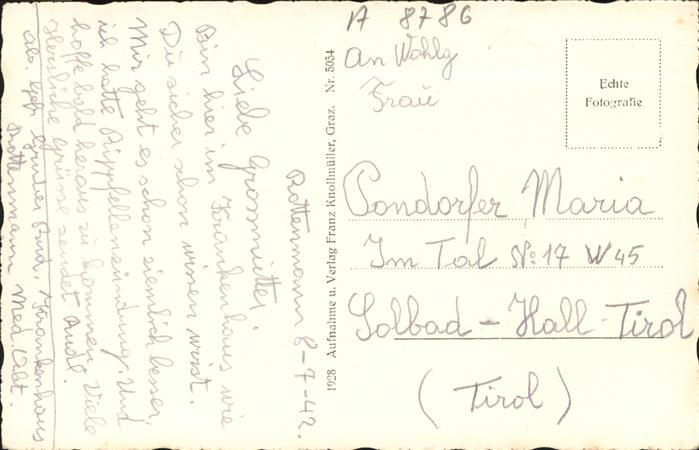 A 8786
An Wohlg
Frau
Echte
Fotografie
Pondorfer Maria
Im Tal No 17 W 45
Solbad - Hall Tirol
(Tirol)
1928 Aufnahme u. Verlag Franz Knollmüller, Graz. Nr. 5054
Rottenmann 8-7-42.
Liebe Grossmutter!
Bin hier im Krankenhaus wie
Du sicher schon wissen wirst.
Mir geht es schon ziemlich besser,
ich hatte Rippfellenzündung. Und
hoffe bald heraus zu kommen. Viele
Herzliche Grüsse sendet Rudl.
Abs. Gefr. Gruber Rud. Krankenhaus
Rottenmann Med. Abt.